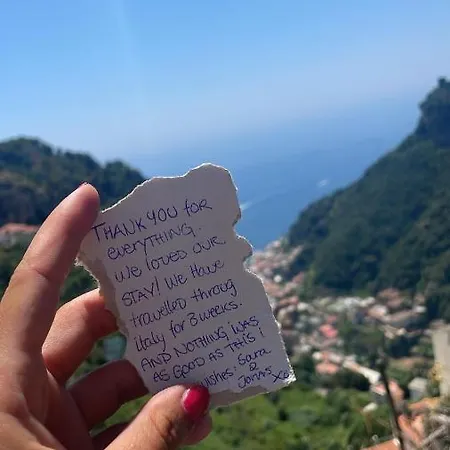 THANK YOU for
everything.
We loved our
STAY! We Have
travelled throug
Italy for 3 weeks.
AND NOTHING WAS
AS GOOD AS THIS!
wishes: Sara
& Jonas xo